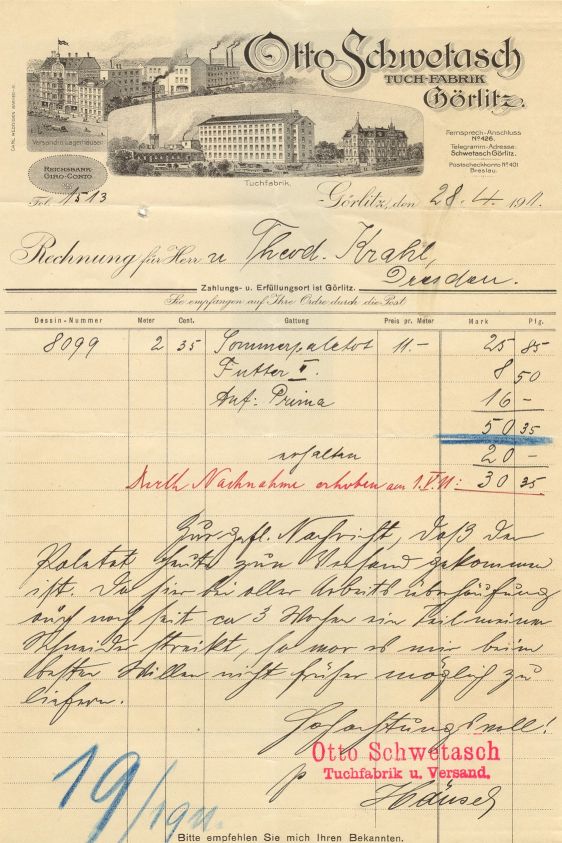 Otto Schwetasch
TUCH-FABRIK
Görlitz.
Versand u. Lagerhäuser.
Fernsprech-Anschluss
No 426.
Telegramm-Adresse:
Schwetasch Görlitz.
Postscheckkonto No 401
Breslau.
REICHSBANK-
GIRO-CONTO.
Tuchfabrik.
Tel. 1513
Görlitz, den 28. 4. 1911.
Rechnung für Herrn Theod. Krahl,
Dresden.
Zahlungs- u. Erfüllungsort ist Görlitz.
Sie empfangen auf Ihre Ordre durch die Post
Dessin-Nummer Meter Cent. Gattung Preis pr. Meter Mark Pfg.
8099 2 35 Sommerpaletot 11.- 25 85
Futter II. 8 50
Anf: Prima 16 -
50 35
erhalten 20 -
Durch Nachnahme erhoben am 1.V.11: 30 35
Zur gefl. Nachricht, daß der
Paletot heute zum Versand gekommen
ist. Da hier bei aller Arbeitsüberhäufung
auch noch seit ca 3 Wochen ein Teil meiner
Schneider streikt, so war es mir beim
besten Willen nicht früher möglich zu
liefern.
Hochachtungsvoll!
Otto Schwetasch
Tuchfabrik u. Versand.
19/1911.
Bitte empfehlen Sie mich Ihren Bekannten.